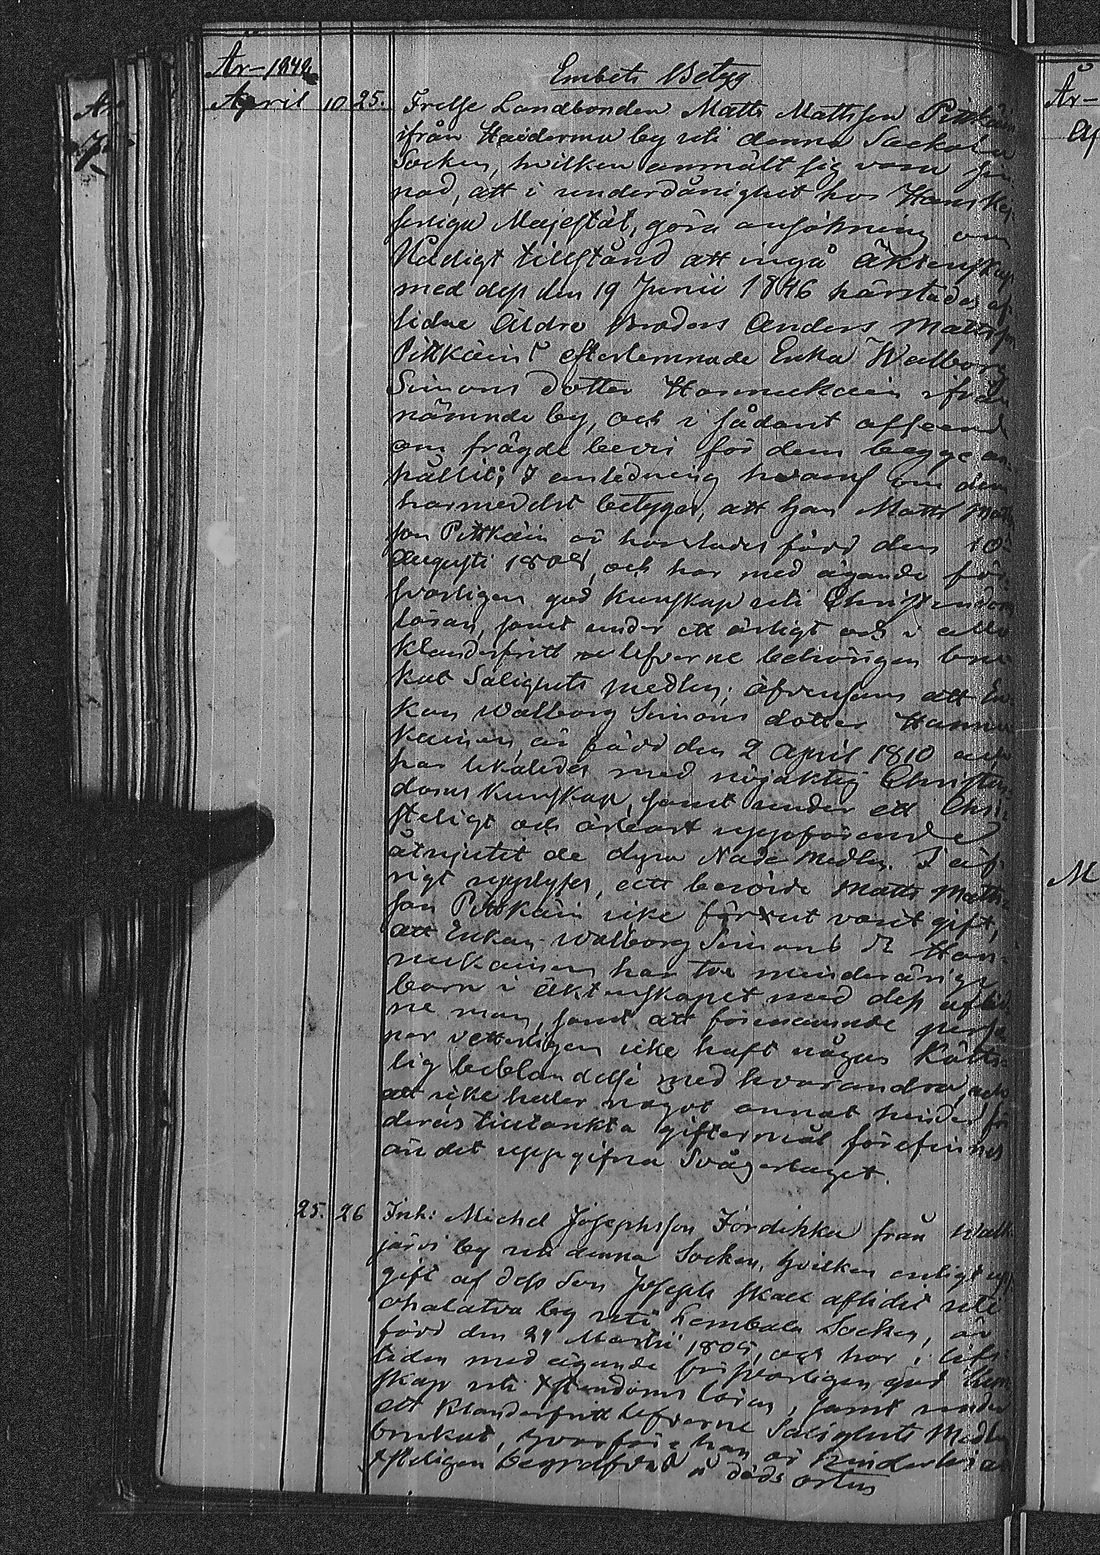 År-1848.
Embets Betyg
April 10 25. Frelse Landbonden Matts Mattsson Pittkäin
ifrån Haiderma by uti denna Sackola
Socken, hvilken anmält sig vara
nad, att i underdånighet hos Hans Kej-
serliga Majestät, göra ansökning om
Nådigt tillstånd att ingå Äktenskap
med dess den 19 Junii 1846 härstädes af
lidne Äldre Broders Anders Mattss.
Pittkäins efterlemnade Enka Walborg
Simons dotter Hannukain ifrån
nämnde by, och i sådant afseende
om frägde bevis för dem begge an-
hållit; I anledning hwaraf om den
härmedelst betygas, att han Matts Matts
son Pittkäin är härstädes född den 10
Augusti 1808, och har med ägande för-
svarligen god kunskap uti Christendoms
läran, samt under ett ärligt och i allo
klanderfritt lefverne behörigen bru-
kat Salighets medlen; äfvensom att En-
kan Walborg Simons dotter Hannu
kainen, är född den 2 April 1810 och
har likaledes med nöjaktig Christen-
doms kunskap samt under ett Chri-
steligt och ärbart uppförande
åtnjutit de dyra Nåde Medlen. I öf-
rigt upplyses, att berörde Matts Matts-
son Pittkäin icke förut varit gift,
att Enkan Walborg Simons dr Han-
nukainen har två minderåriga
barn i äktenskapet med dess aflid-
ne man, samt att förenämnde perso
ner vetterligen icke haft någon Kötts-
lig beblandelse med hvarandra, och
att icke heller något annat hinder för
deras tilltänkta giftermål förefinnes
än det uppgifna Svågerlaget.
25. 26 Inh: Michel Josephsson Jordikka från Walk
järvi by uti denna Socken, hvilken enligt upp
gift af dess Son Joseph skall aflidit uti
ohalatva by uti Lembala Socken, är
född den 29 Martii 1805, och har i lifs
tiden med ägande försvarligen god kun
skap uti Xstendoms läran, samt under
ett klanderfritt lefverne Salighets Medlen
brukat, hvarföre han är hinderlös att
Xsteligen begrafvas å döds orten
År-
Ap
M